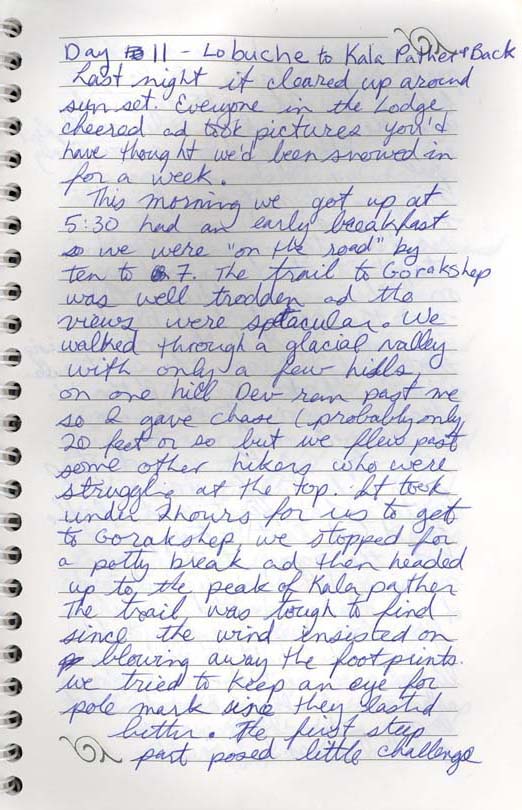 Day 11 - Lobuche to Kala Pather + Back
Last night it cleared up around
sun set. Everyone in the Lodge
cheered ad took pictures you'd
have thought we'd been snowed in
for a week.
This morning we got up at
5:30 had an early breakfast
so we were "on the road" by
ten to 7. The trail to Gorakshep
was well trodden ad the
views were sptacular. We
walked through a glacial valley
with only a few hills,
on one hill Dev ran past me
so I gave chase (probably only
20 feet or so but we flew past
some other hikers who were
struggling at the top. It took
under 2 hours for us to get
to Gorakshep, we stopped for
a potty break ad then headed
up to the peak of Kala pather
The trail was tough to find
since the wind insisted on
blowing away the footprints.
we tried to keep an eye for
pole mark since they lasted
better. The first steep
part posed little challenge